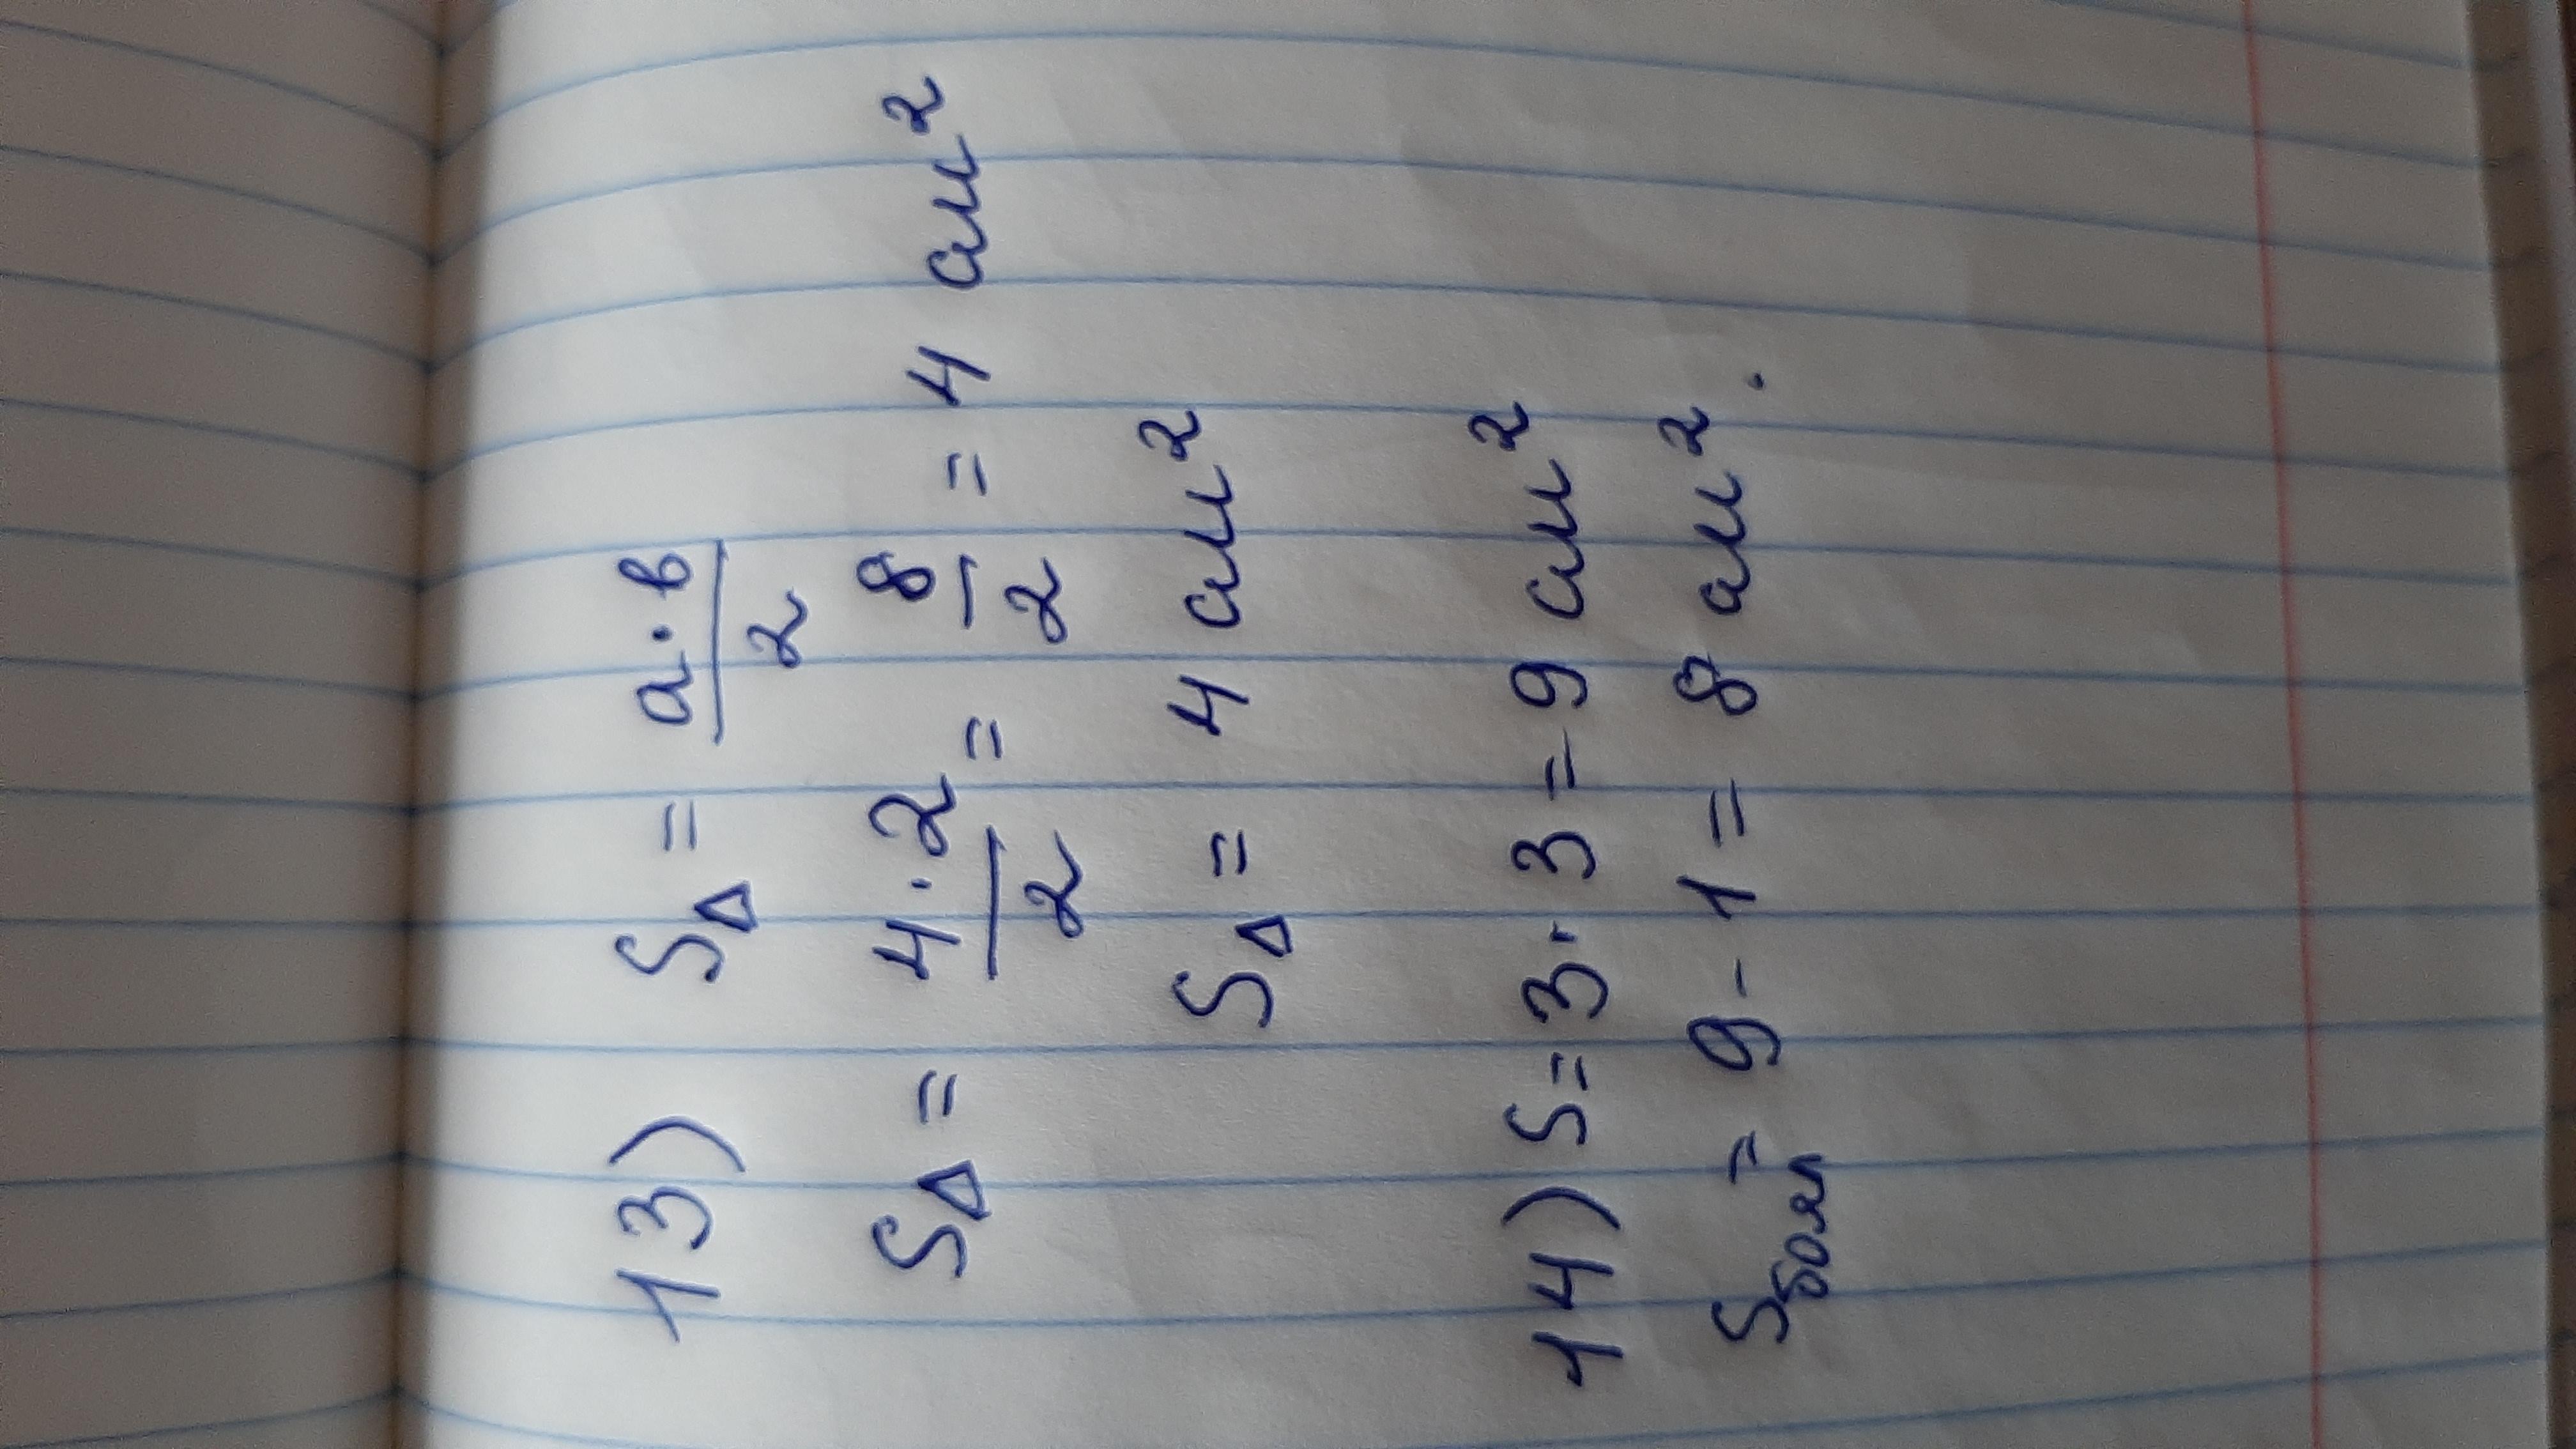 13) S△ = a·b/2
S△ = 4·2/2 = 8/2 = 4 см²
S△ = 4 см²
14) S=3·3=9 см²
Sбол = 9-1=8 см².